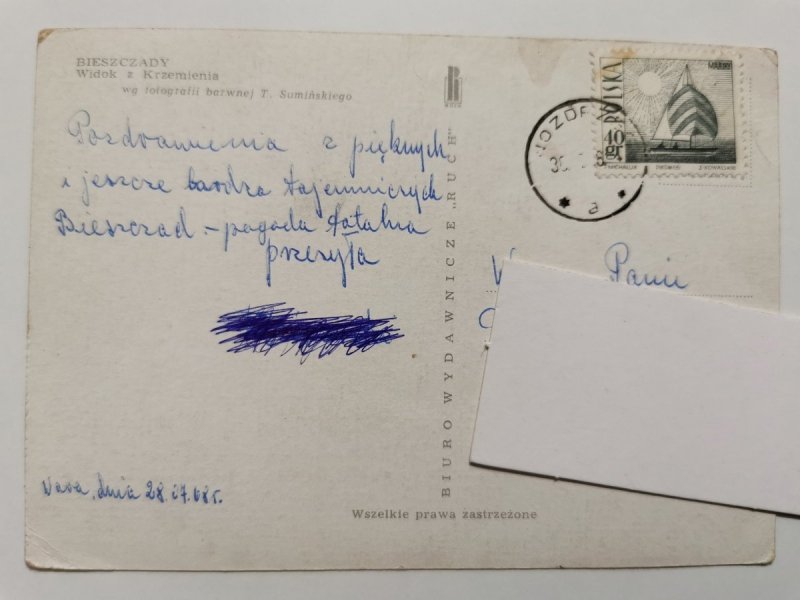 BIESZCZADY
Widok z Krzemienia
wg fotografii barwnej T. Sumińskiego
Pozdrowienia z pięknych
i jeszcze bardzo tajemniczych
Bieszczad – pogoda totalna
przesyła
dnia 28.07.68 r.
BIURO WYDAWNICZE „RUCH"
RUCH
Wszelkie prawa zastrzeżone
POLSKA
40 gr
a
W. Panii